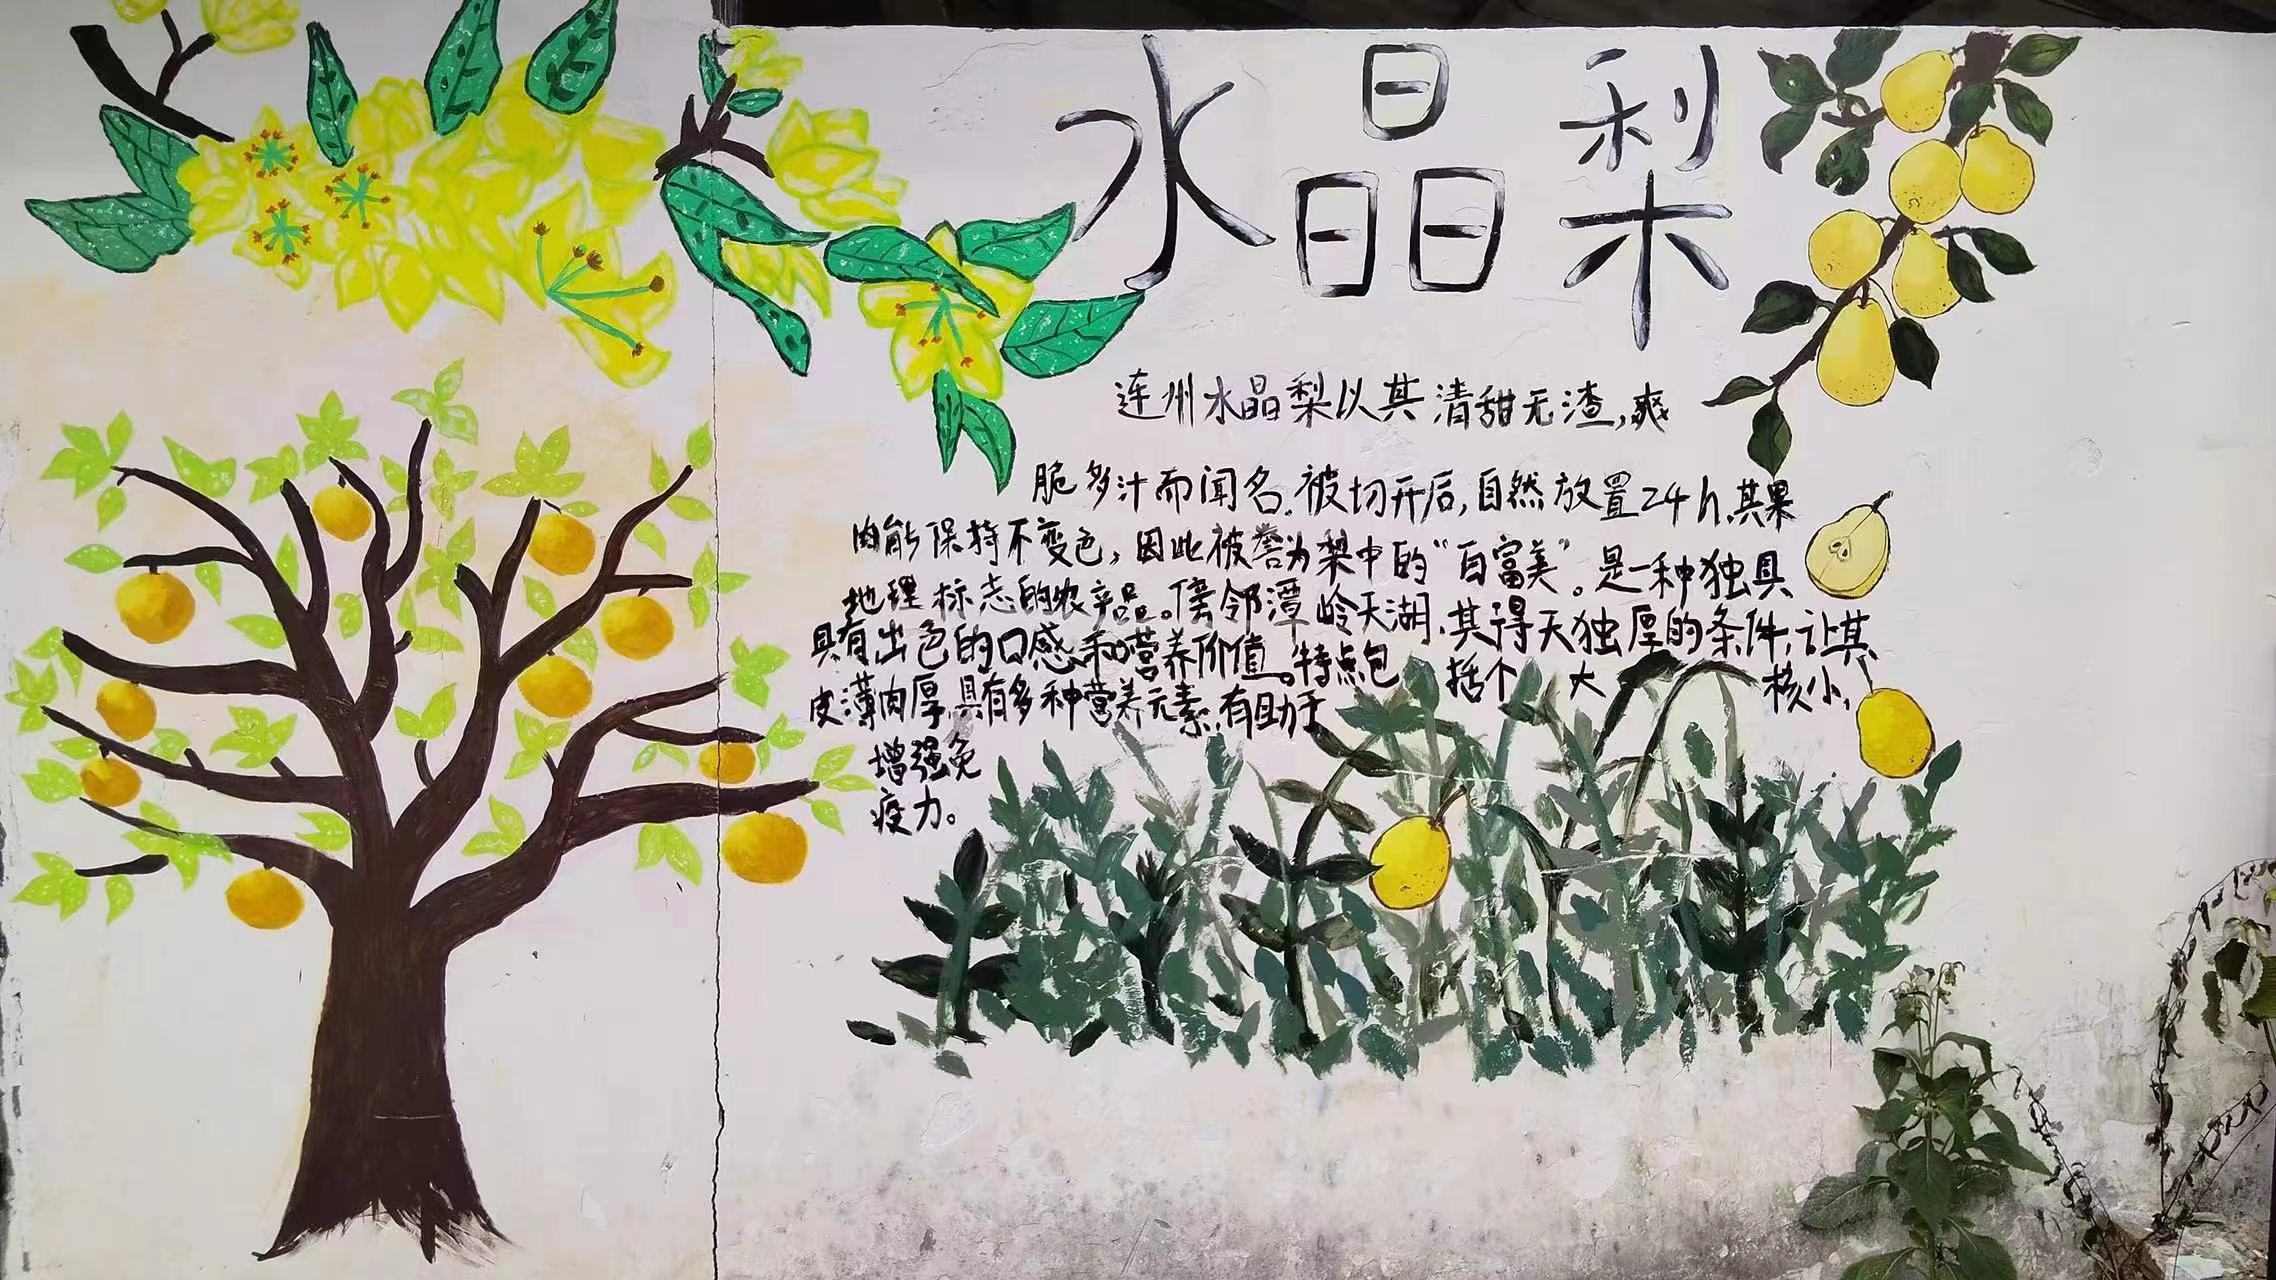 水晶梨
连州水晶梨以其清甜无渣,爽
脆多汁而闻名.被切开后,自然放置24h,其果
肉能保持不变色,因此被誉为梨中的“百富美”。是一种独具
地理标志的农产品。傍邻潭岭天湖,其得天独厚的条件,让其
具有出色的口感和营养价值。特点包括个大核小,
皮薄肉厚,具有多种营养元素,有助于
增强免
疫力。